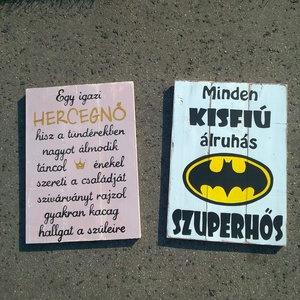 Egy igazi
HERCEGNŐ
hisz a tündérekben
nagyot álmodik
táncol énekel
szereti a családját
szivárványt rajzol
gyakran kacag
hallgat a szüleire
Minden
KISFIÚ
álruhás
SZUPERHŐS